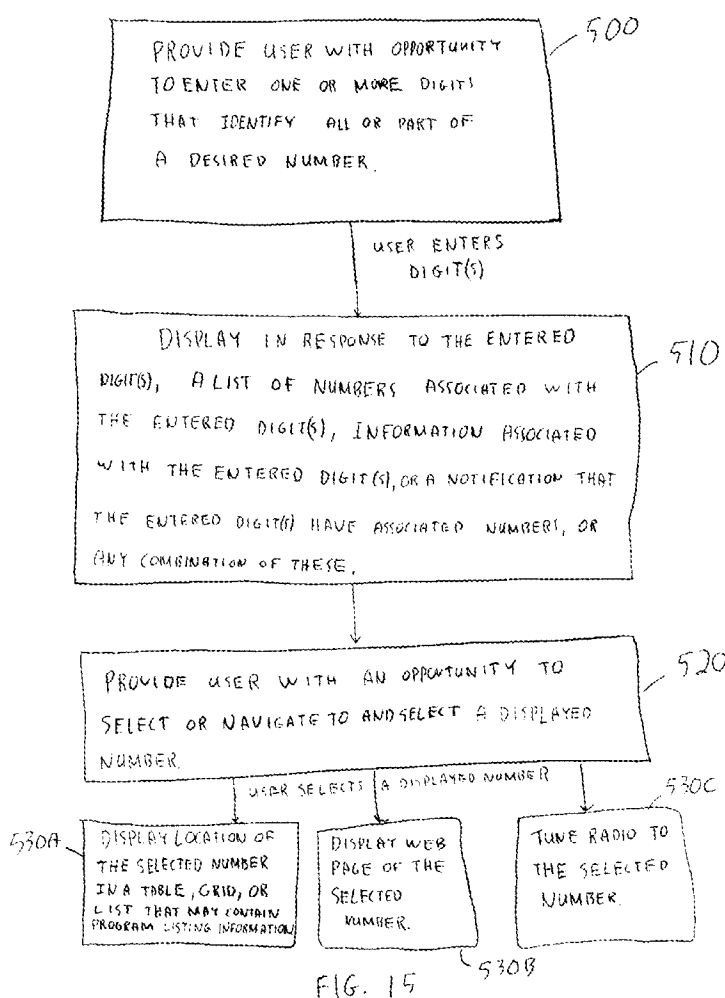 500
PROVIDE USER WITH OPPORTUNITY
TO ENTER ONE OR MORE DIGITS
THAT IDENTIFY ALL OR PART OF
A DESIRED NUMBER.
USER ENTERS
DIGIT(S)
510
DISPLAY IN RESPONSE TO THE ENTERED
DIGIT(S), A LIST OF NUMBERS ASSOCIATED WITH
THE ENTERED DIGIT(S), INFORMATION ASSOCIATED
WITH THE ENTERED DIGIT(S), OR A NOTIFICATION THAT
THE ENTERED DIGIT(S) HAVE ASSOCIATED NUMBERS, OR
ANY COMBINATION OF THESE.
520
PROVIDE USER WITH AN OPPORTUNITY TO
SELECT OR NAVIGATE TO AND SELECT A DISPLAYED
NUMBER.
USER SELECTS A DISPLAYED NUMBER
530A
DISPLAY LOCATION OF
THE SELECTED NUMBER
IN A TABLE, GRID, OR
LIST THAT MAY CONTAIN
PROGRAM LISTING INFORMATION
DISPLAY WEB
PAGE OF THE
SELECTED
NUMBER.
530B
530C
TUNE RADIO TO
THE SELECTED
NUMBER.
FIG. 15